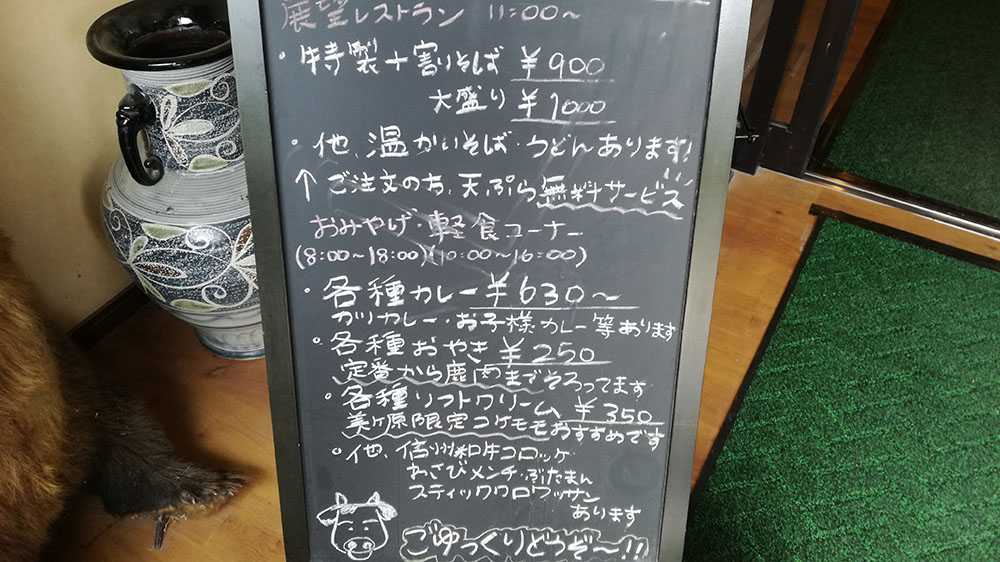 展望レストラン 11:00～
・特製十割そば ￥900
大盛り ￥1000
・他、温かいそば・うどんあります!
↑ご注文の方、天ぷら無料サービス
おみやげ・軽食コーナー
(8:00～18:00)(10:00～16:00)
・各種カレー ￥630～
カツカレー・お子様カレー等あります
・各種おやき ￥250
定番から鹿肉までそろってます
・各種ソフトクリーム ￥350
美ヶ原限定コケモモおすすめです
・他、信州和牛コロッケ
わさびメンチ・ぶたまん
スティッククロワッサン
あります
ごゆっくりどうぞ～!!